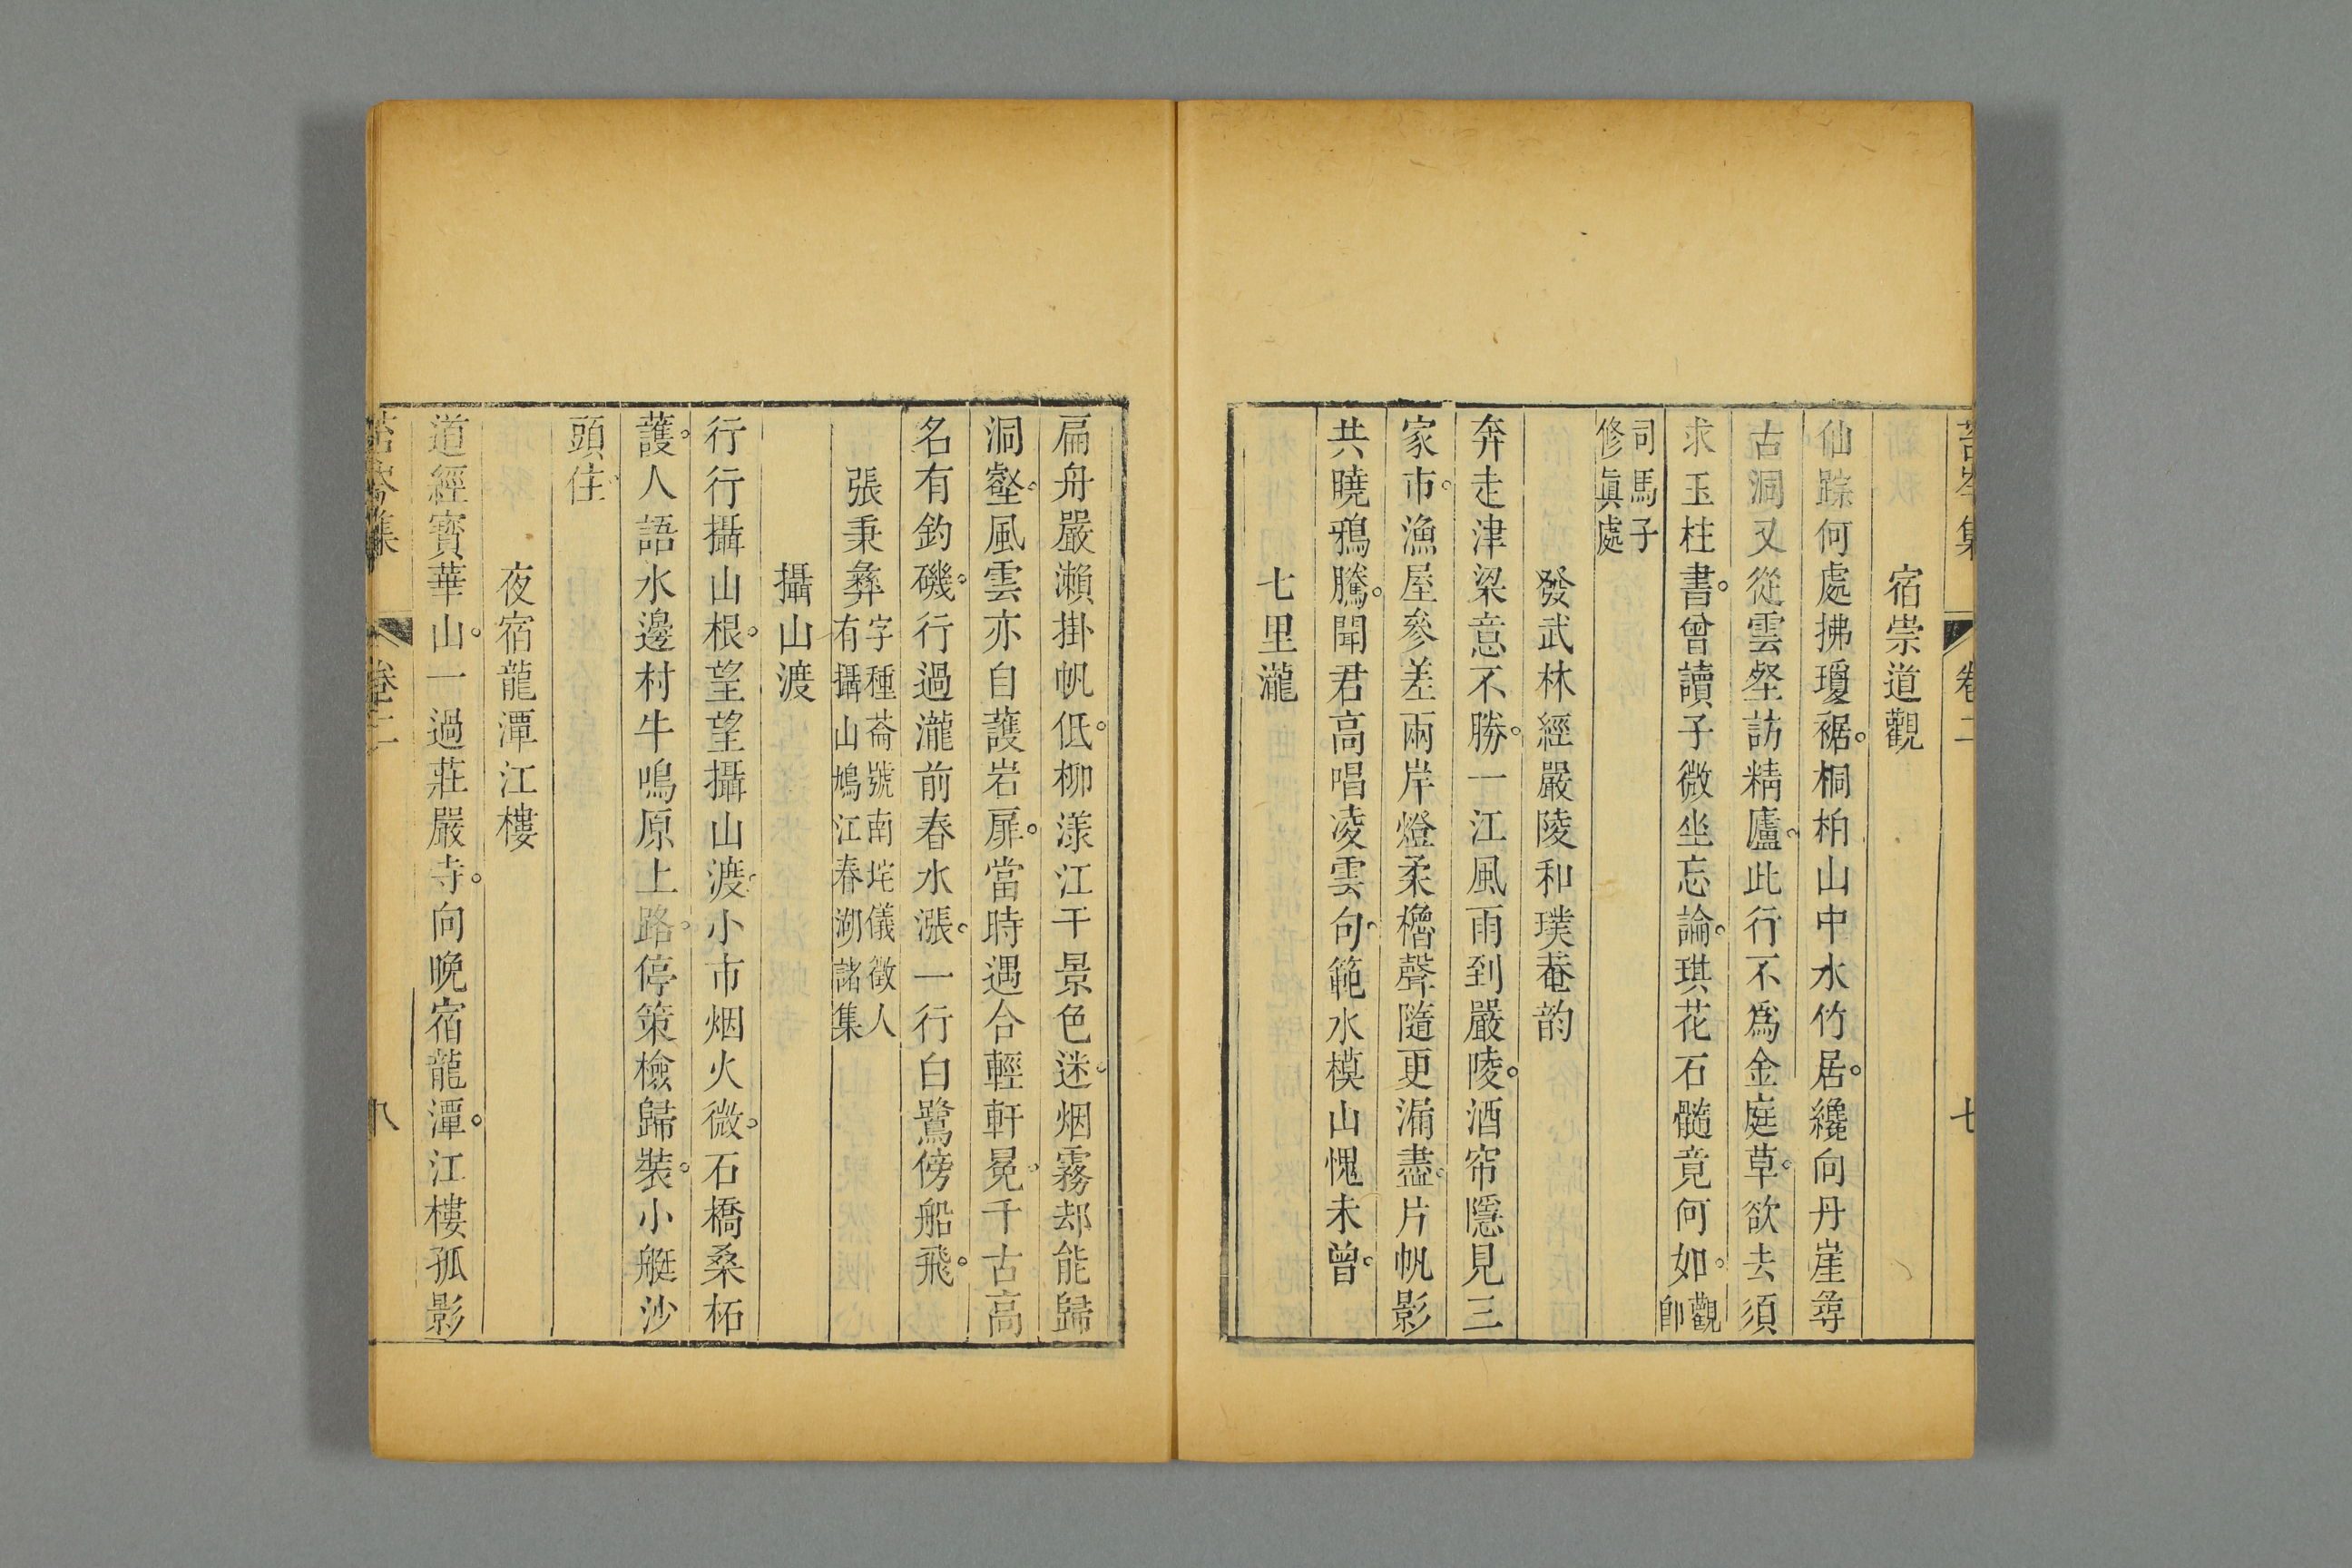 苔岑集 卷二 七
宿崇道觀
仙踪何處拂瓊裾。桐柏山中水竹居。纔向丹崖尋
古洞又從雲壑訪精廬。此行不爲金庭草。欲去須
求玉柱書。曾讀子微坐忘論。琪花石髓竟何如。觀卽
司馬子
修眞處
發武林經嚴陵和璞菴韵
奔走津梁意不勝。一江風雨到嚴陵。酒帘隱見三
家市。漁屋參差兩岸燈柔櫓聲隨更漏盡。片帆影
共曉鴉騰。聞君高唱凌雲句。範水模山愧未曾。
七里瀧
扁舟嚴瀨掛帆低。柳漾江干景色迷。烟霧却能歸
洞壑。風雲亦自護岩扉。當時遇合輕軒冕。千古高
名有釣磯。行過瀧前春水漲。一行白鷺傍船飛。
張秉彝字種菕號南垞儀徵人
有攝山鳩江春溯諸集
攝山渡
行行攝山根。望望攝山渡。小市烟火微。石橋桑柘
護。人語水邊村牛鳴原上路。停策檢歸裝。小艇沙
頭住。
夜宿龍潭江樓
道經寳華山。一過莊嚴寺。向晚宿龍潭。江樓孤影
苔岑集 卷二 八